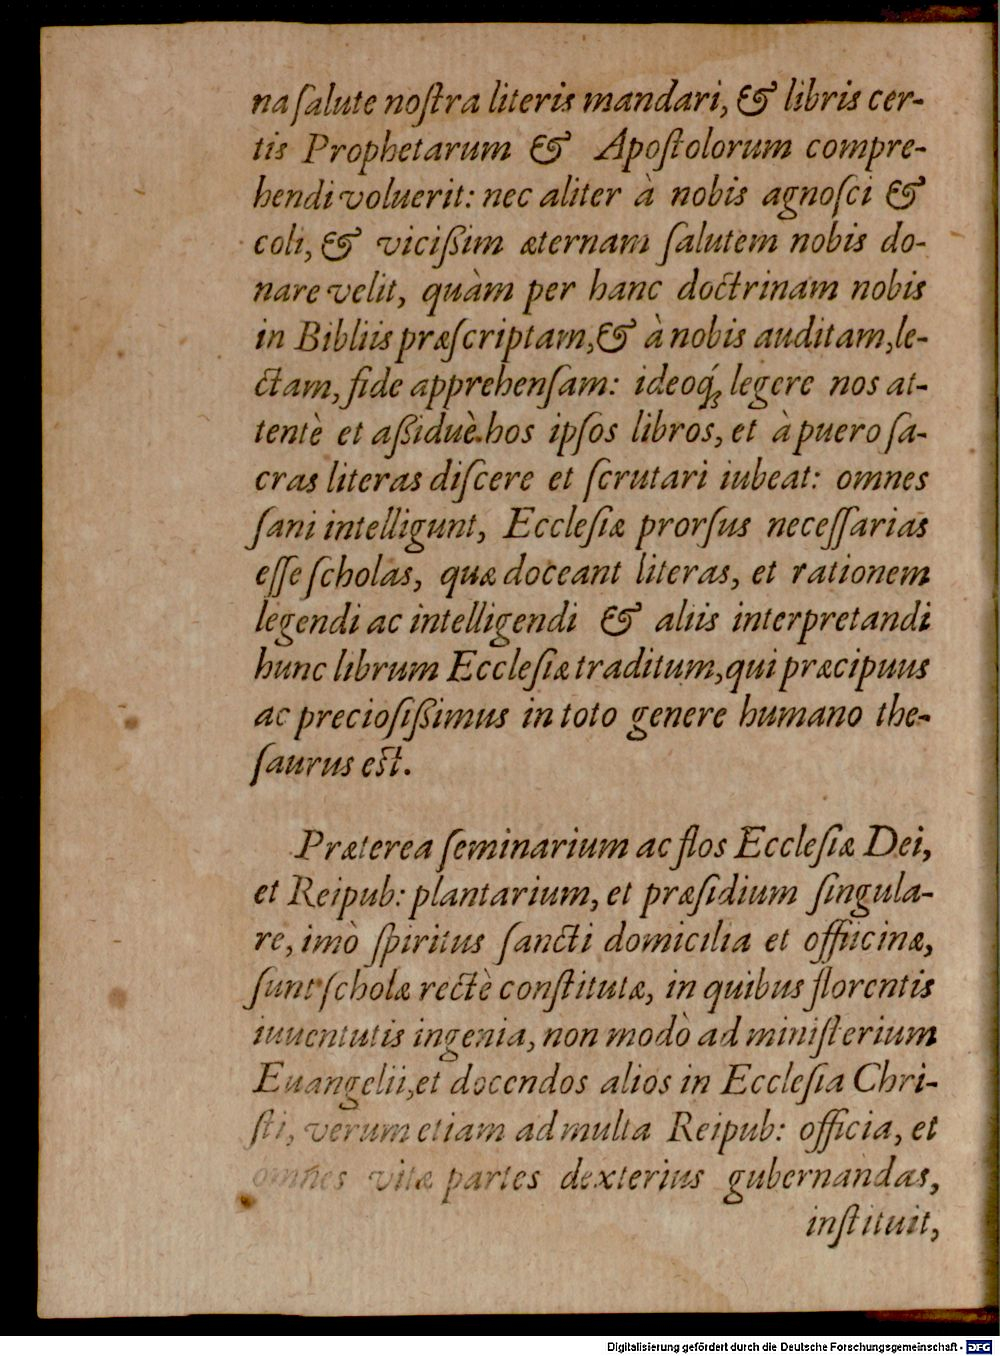 na ſalute noſtra literis mandari, & libris cer-
tis Prophetarum & Apoſtolorum compre-
hendi voluerit: nec aliter à nobis agnoſci &
coli, & vicißim æternam ſalutem nobis do-
nare velit, quàm per hanc doctrinam nobis
in Bibliis præſcriptam, & à nobis auditam, le-
ctam, fide apprehenſam: ideoq́ꝫ legere nos at-
tentè et aßiduè hos ipſos libros, et à puero ſa-
cras literas diſcere et ſcrutari iubeat: omnes
ſani intelligunt, Eccleſiæ prorſus neceſſarias
eſſe ſcholas, quæ doceant literas, et rationem
legendi ac intelligendi & aliis interpretandi
hunc librum Eccleſiæ traditum, qui præcipuus
ac precioſißimus in toto genere humano the-
ſaurus eſt.
Præterea ſeminarium ac flos Eccleſiæ Dei,
et Reipub: plantarium, et præſidium ſingula-
re, imò ſpiritus ſancti domicilia et offiicinæ,
ſunt ſcholæ rectè conſtitutæ, in quibus florentis
iuuentutis ingenia, non modò ad miniſterium
Euangelii, et docendos alios in Eccleſia Chri-
ſti, verum etiam ad multa Reipub: officia, et
omnes vitæ partes dexterius gubernandas,
inſtituit,
Digitalisierung gefördert durch die Deutsche Forschungsgemeinschaft - DFG